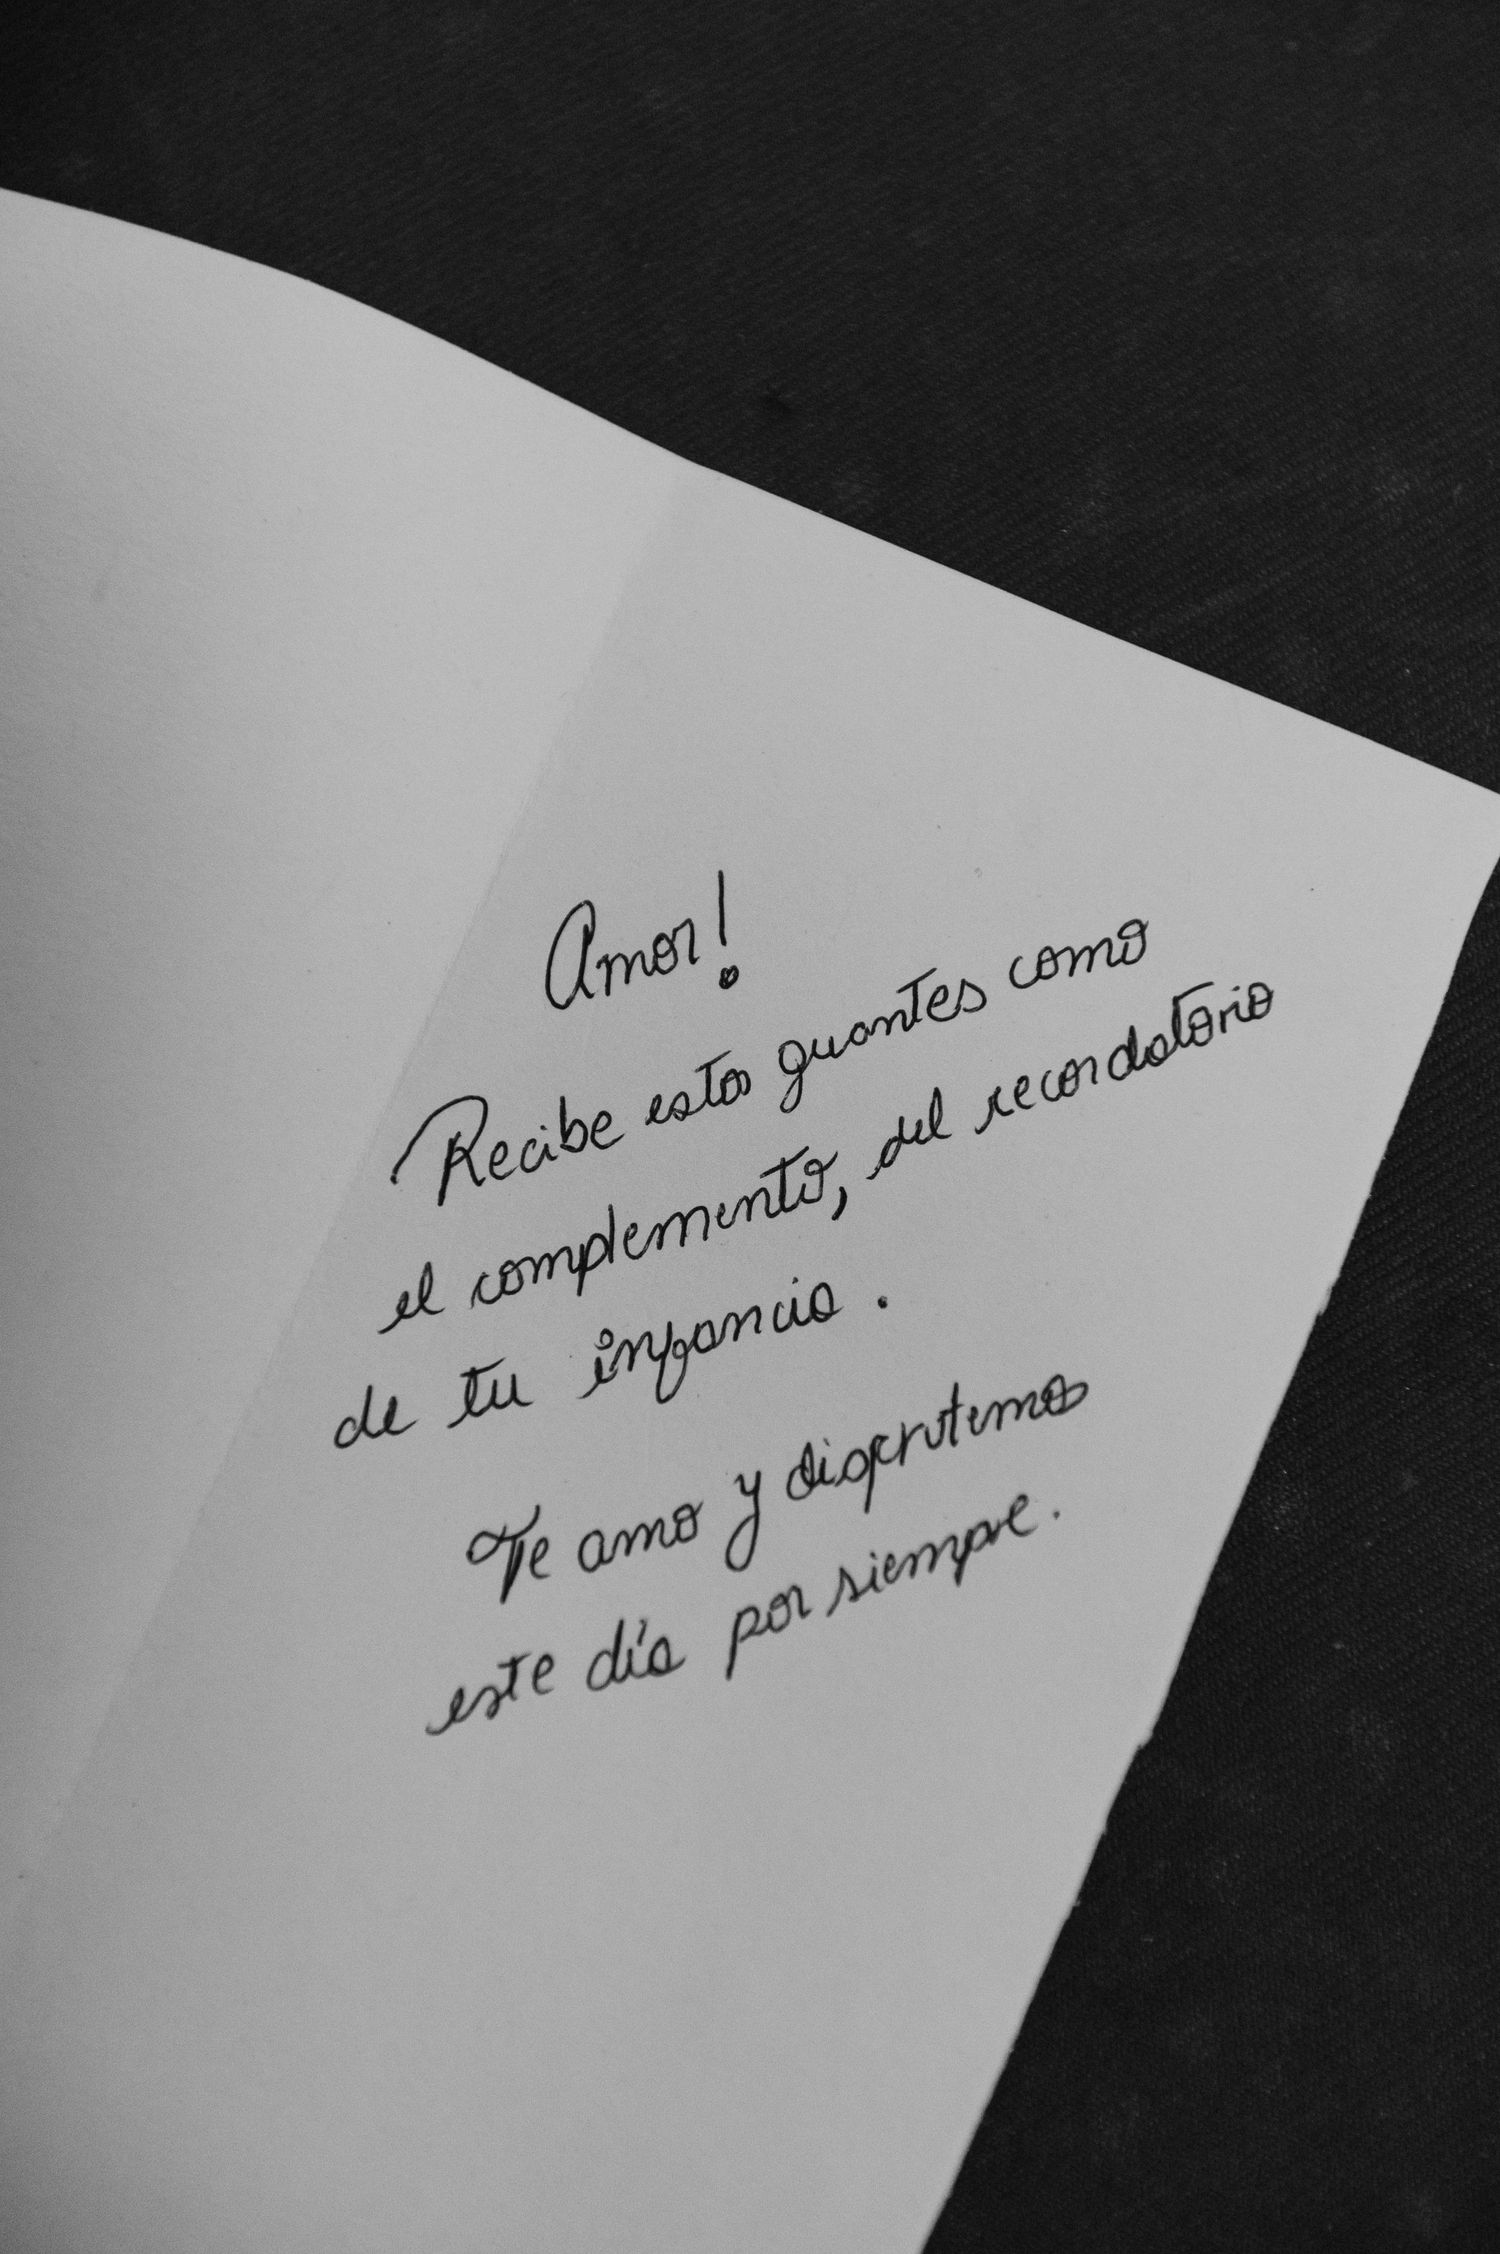 Amor!
Recibe estos guantes como
el complemento, del recordatorio
de tu infancia.
Te amo y disfrutemos
este día por siempre.